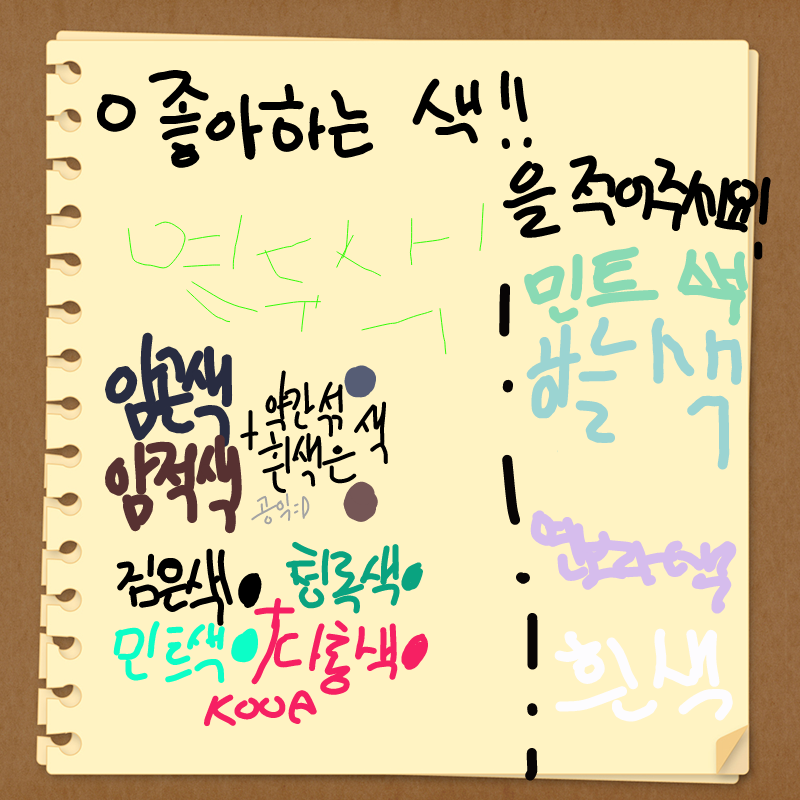 ㅇ 좋아하는 색!!
을 적어주시요!
연두색
암군색
암적색
+ 약간 섞
흰색은 색
공익:D
검은색
청록색
민트색
다홍색
KOOA
민트 색
하늘색
연보라색
흰색